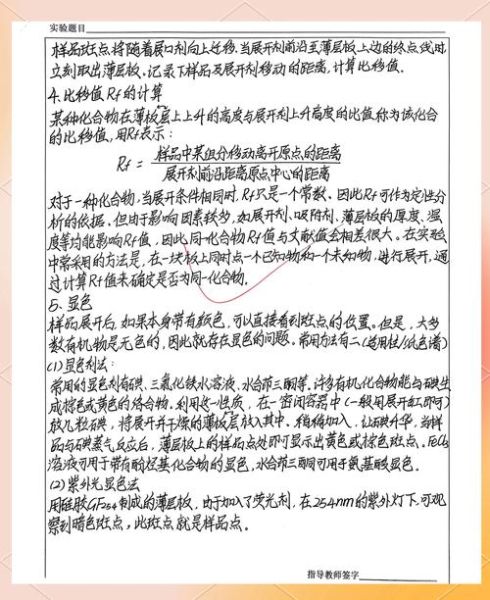 实验题目
样品斑点将随着展开剂向上迁移.当展开剂前沿至薄层板上边的终点线时,
立刻取出薄层板.记录下样品及展开剂移动的距离,计算比移值.
4.比移值Rf的计算
某种化合物在薄板层上上升的高度与展开剂上升高度的比值称为该化合
的比移值,用Rf表示:
Rf = 样品中某组分移动离开原点的距离
展开剂前沿距离原点中心的距离
对于一种化合物,当展开条件相同时,Rf只是一个常数.因此Rf可作为定性分
析的依据.但由于影响因素较多,如展开剂、吸附剂、薄层板的厚度、温
度等均能影响Rf值,因此同一化合物Rf值与文献值会相差很大.在实验
中常采用的方法是,在一块板上同时点一个已知物和一个未知物,进行展开,通
过计算Rf值来确定是否为同一化合物.
5.显色
样品展开后,如果本身带有颜色,可以直接看到斑点的位置.但是,大多
数有机物是无色的,因此就存在显色的问题.常用方法有二(适用性/纸色谱)
(1)显色剂法:
常用的显色剂有碘、三氯化铁水溶液、水合茚三酮等.许多有机化合物能与碘生
成棕色或黄色的络合物.利用这一性质,在一密闭容器中(一般用展开缸即可)
放几粒碘,将展开并干燥的薄板层放入其中,稍稍加入,让碘升华,当样
品与碘蒸气反应后,薄层板上的样品点处即可显示出黄色或棕色斑点、FeCl₃
溶液可用于带有酚羟基化合物的显色,水合茚三酮可用于氨基酸显色.
(2)紫外光显色法
用硅胶GF254制成的薄层板,由于加入了荧光剂,在254nm的紫外灯下,可观
察到暗色斑点,此斑点就是样品点.
指导教师签字